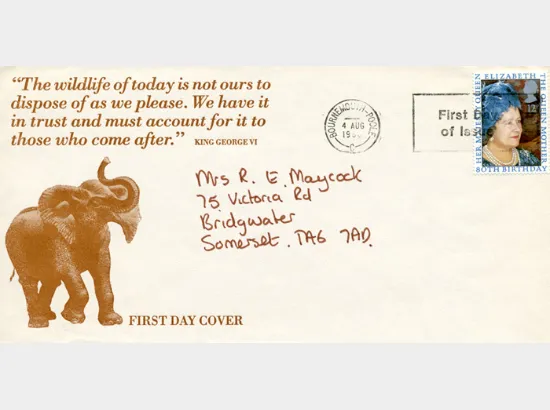 “The wildlife of today is not ours to
dispose of as we please. We have it
in trust and must account for it to
those who come after.” KING GEORGE VI
BOURNEMOUTH-POOLE
4 AUG
C
First Day
of Issue
HER MAJESTY QUEEN
ELIZABETH
THE QUEEN MOTHER
80TH BIRTHDAY
Mrs R. E. Maycock
75 Victoria Rd
Bridgwater
Somerset. TA6 7AD.
FIRST DAY COVER